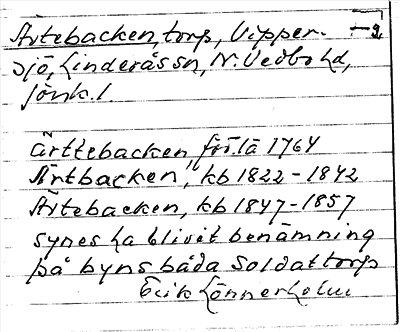 Ärtebacken, torp, Vipper-
sjö, Linderås sn, N. Vedbo hd,
Jönk. l.
ärttebacken, förl. lä 1764
Ärtbacken, kb 1822-1842
Ärtebacken, kb 1847-1857
synes ha blivit benämning
på byns båda soldattorp
Erik Lönnerholm